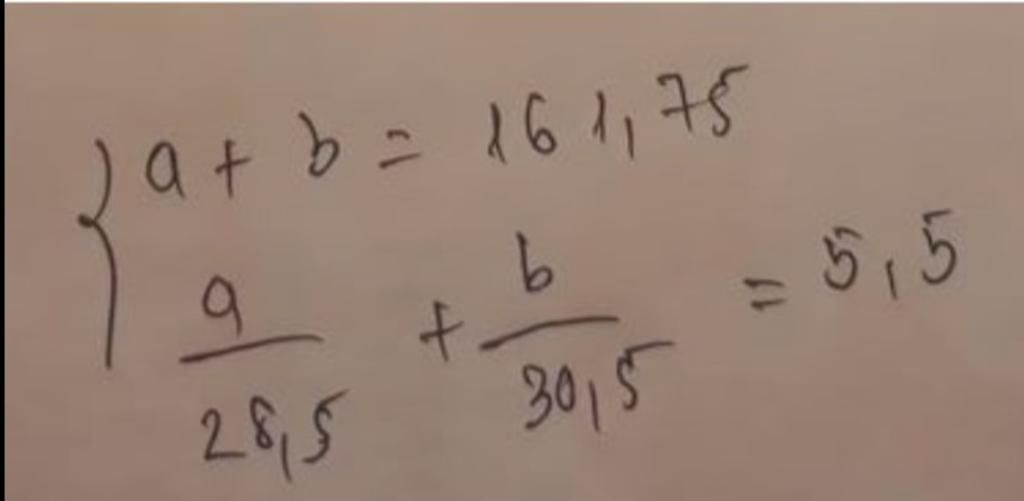 a + b = 161,75
a/28,5 + b/30,5 = 5,5